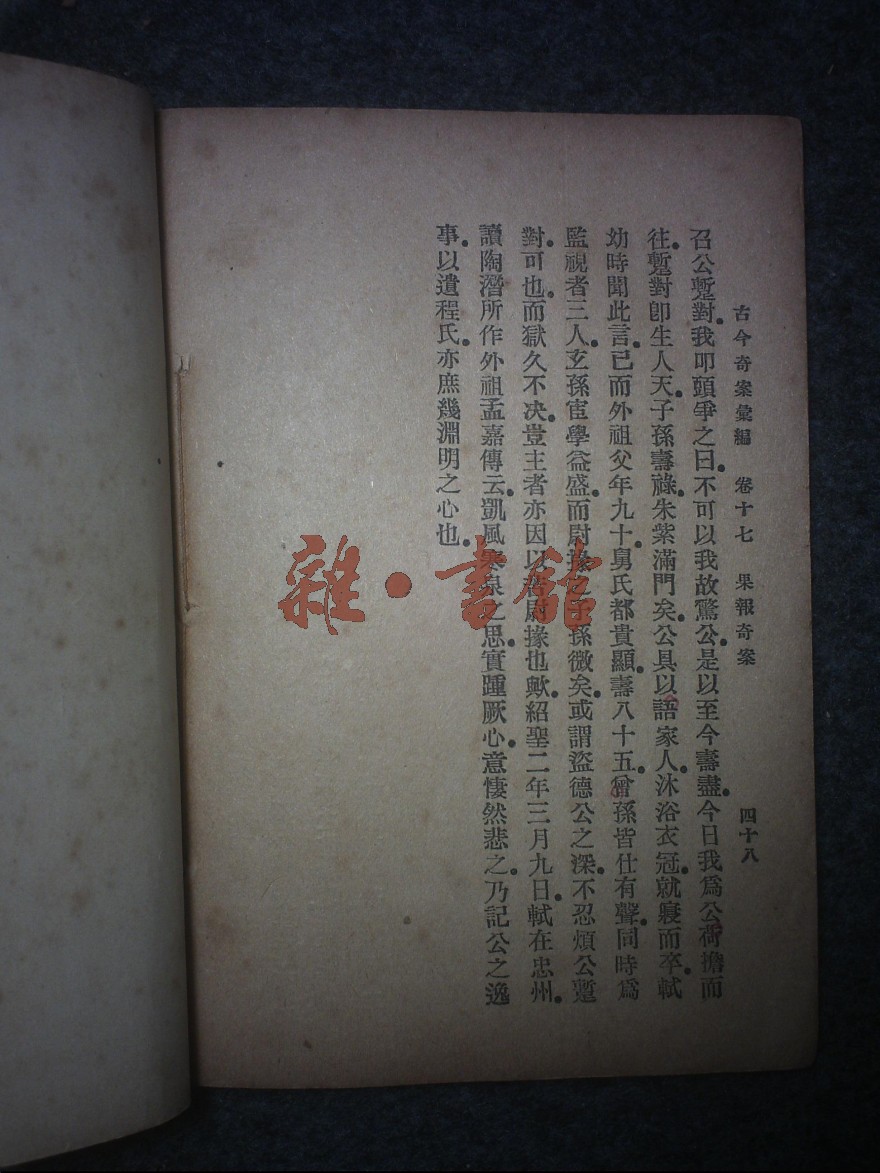 古今奇案彙編　卷十七　果報奇案　四十八
召公蹔對。我叩頭爭之曰。不可以我故驚公。是以至今壽盡。今日我爲公荷擔而
往。蹔對卽生人天。子孫壽祿。朱紫滿門矣。公具以語家人。沐浴衣冠。就寢而卒。軾
幼時聞此言。已而外祖父年九十。舅氏都貴顯。壽八十五。曾孫皆仕有聲。同時爲
監視者三人。玄孫宦學益盛。而尉掾之子孫微矣。或謂盜德公之深。不忍煩公蹔
對。可也。而獄久不决。豈主者亦因以苦尉掾也歟。紹聖二年三月九日。軾在忠州。
讀陶潛所作外祖孟嘉傳云。凱風寒泉之思。實踵厥心。意悽然悲之。乃記公之逸
事。以遺程氏。亦庶幾淵明之心也。
雜·書館